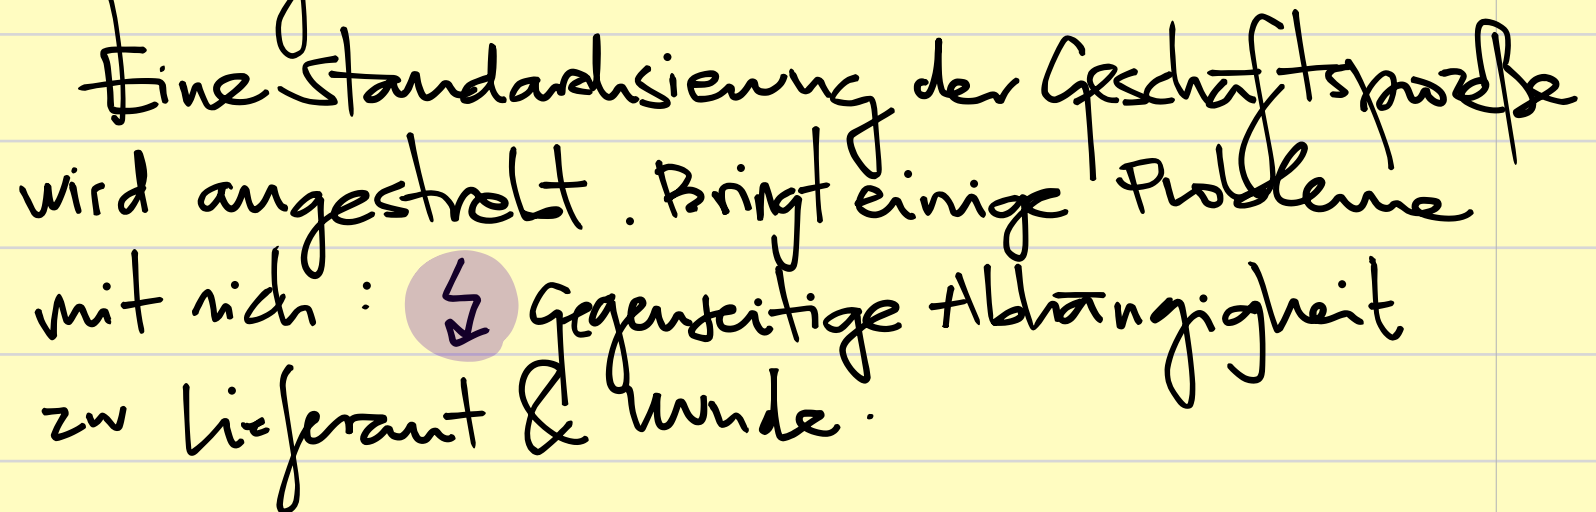 Eine Standardisierung der Geschäftsprozeße
wird angestrebt. Bringt einige Probleme
mit sich: ↯ Gegenseitige Abhängigkeit
zw Lieferant & Kunde.